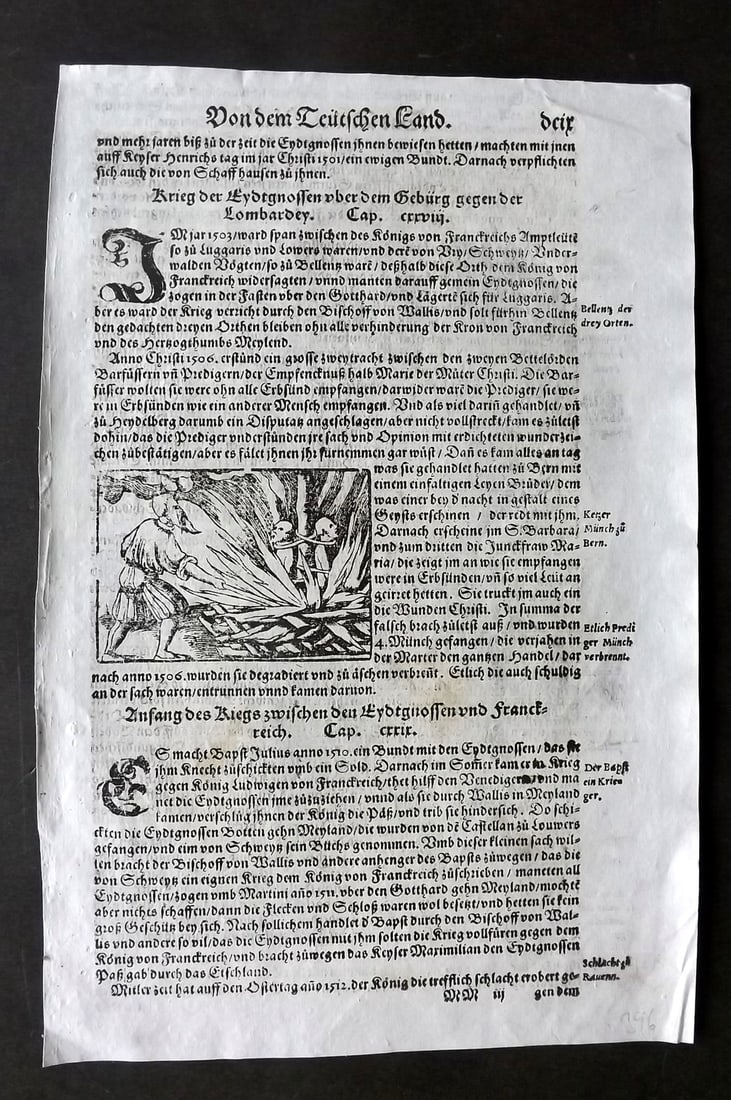 Von dem Teütschen Land. dcix
vnd mehr jaren biß zů der zeit die Eydtgnossen jhnen bewiesen hetten / machten mit jnen
auff Keyser Henrichs tag im jar Christi 1501 / ein ewigen Bundt. Darnach verpflichten
sich auch die von Schaffhausen zů jhnen.
Krieg der Eydtgnossen vber dem Gebürg gegen der
Lombardey. Cap. cxxviij.
IM jar 1503 / ward span zwischen des Königs von Franckreichs Amptleütẽ
so zů Luggaris vnd Lowers waren / vnd derẽ von Vry / Schweytz / Vnder-
walden Vögten / so zů Bellentz warẽ / deßhalb diese Orth dem König von
Franckreich widersagten / vnnd manten darauff gemein Eydtgnossen / die
zogen in der Fasten vber den Gotthard / vnd Lägertẽ sich für Luggaris. A-
ber es ward der Krieg verricht durch den Bischoff von Wallis / vnd solt fürhin Bellentz
den gedachten dreyen Orthen bleiben ohn alle verhinderung der Kron von Franckreich
vnd des Hertzogthumbs Meylend.
Bellentz der
drey Orten.
Anno Christi 1506. erstůnd ein grosse zweytracht zwischen den zweyen Bettelörden
Barfüssern vñ Predigern / der Empfencknuß halb Marie der Můter Christi. Die Bar-
füsser wolten sie were ohn alle Erbsünd empfangen / darwider warẽ die Prediger / sie we-
re in Erbsünden wie ein anderer Mensch empfangen. Vnd als viel dariñ gehandlet / vñ
zů Heydelberg darumb ein Disputatz angeschlagen / aber nicht vollstreckt / kam es zůletst
dohin / das die Prediger vnderstůnden jre sach vnd Opinion mit erdichteten wunderzei-
chen zůbestätigen / aber es fälet jhnen jhr fürnemmen gar wüst / Dañ es kam alles an tag
was sie gehandlet hatten zů Bern mit
einem einfaltigen Leyen Brůder / dem
was einer bey d' nacht in gestalt eines
Geysts erschinen / der redt mit jhm.
Darnach erscheint jm S. Barbara /
vnd zum dritten die Junckfraw Ma-
ria / die zeigt jm an wie sie empfangen
were in Erbsünden / vñ so viel Leüt an
geirret hetten. Sie truckt jm auch ein
die Wunden Christi. In summa der
falsch brach zůletst auß / vnd wurden
4. Münch gefangen / die verjahen in
der Marter den gantzen Handel / dar
nach anno 1506. wurden sie degradiert vnd zů äschen verbreñt. Etlich die auch schuldig
an der sach waren / entrunnen vnnd kamen daruon.
Ketzer
Münch zů
Bern.
Etlich Predi
ger Münch
verbrennt.
Anfang des Kiegs zwischen den Eydtgnossen vnd Franck-
reich. Cap. cxxix.
ES macht Bapst Julius anno 1510. ein Bundt mit den Eydtgnossen / das sie
jhm Knecht zůschickten vmb ein Sold. Darnach im Som̃er kam er in Krieg
gegen König Ludwigen von Franckreich / thet hilff den Venedigern / vnd ma
net die Eydtgnossen jme zůzůziehen / vnnd als sie durch Wallis in Meyland
kamen / verschlůg jhnen der König die Päß / vnd trib sie hindersich. Do schi-
ckten die Eydtgnossen Botten gehn Meyland / die wurden von dẽ Castellan zů Louwers
gefangen / vnd eim von Schweytz sein Büchs genommen. Vmb dieser kleinen sach wil-
len bracht der Bischoff von Wallis vnd andere anhenger des Bapsts zůwegen / das die
von Schweytz ein eignen Krieg dem König von Franckreich zůschrieben / maneten all
Eydtgnossen / zogen vmb Martini año 1511. vber den Gotthard gehn Meyland / mochtẽ
aber nichts schaffen / dann die Flecken vnd Schloß waren wol besetzt / vnd hetten sie kein
groß Geschütz bey sich. Nach sollichem handlet d' Bapst durch den Bischoff von Wal-
lis vnd andere so vil / das die Eydtgnossen mit jhm solten die Krieg vollfüren gegen dem
König von Franckreich / vnd bracht zůwegen das Keyser Maximilian den Eydtgnossen
Paß gab durch das Etschland.
Der Bapst
ein Krie
ger.
Mitler zeit hat auff den Ostertag año 1512. der König die trefflich schlacht erobert ge-
Schlacht zů
Rauenn.
MM iij gen dem
296